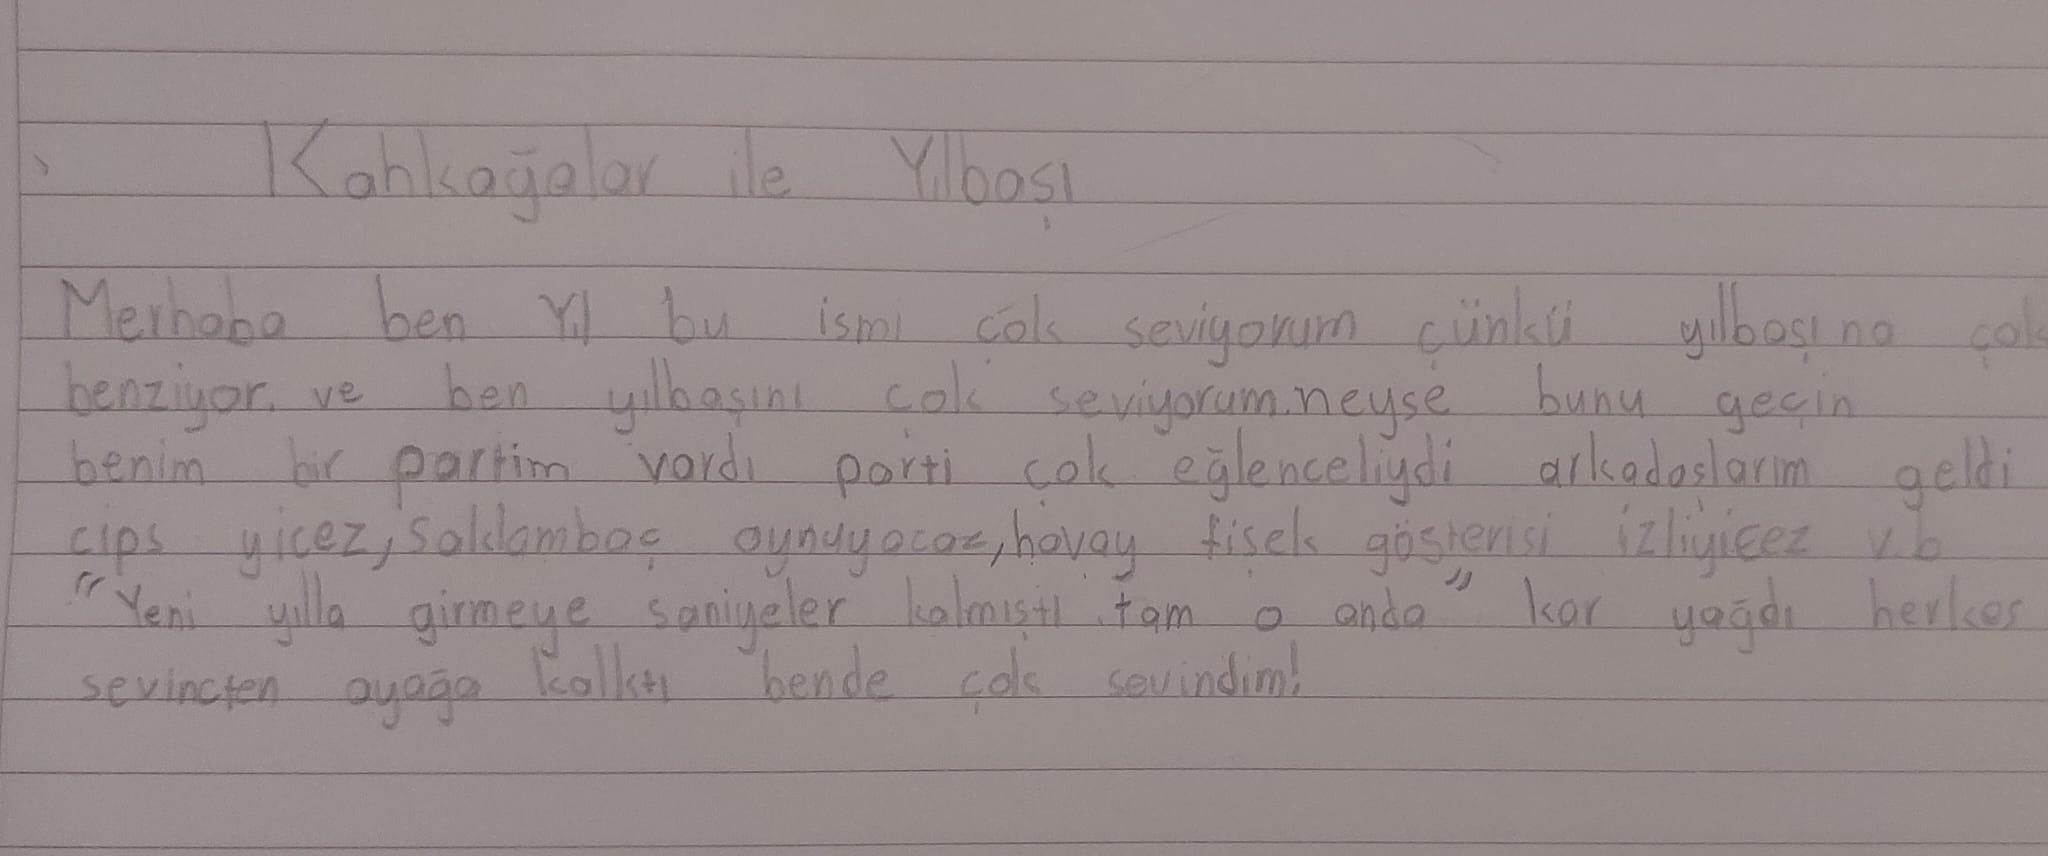 Kahkağalar ile Yılbaşı
Merhaba ben Yıl bu ismi çok seviyorum çünkü yılbaşına çok
benziyor. ve ben yılbaşını çok seviyorum.neyse bunu geçin
benim bir partim vardı parti çok eğlenceliydi arkadaşlarım geldi
cips yicez, saklambaç oynuyacaz, havay fişek gösterisi izliyicez v.b
"Yeni yılla girmeye saniyeler kalmıştı tam o anda" kar yağdı herkes
sevincten ayağa kalktı bende çok sevindim!